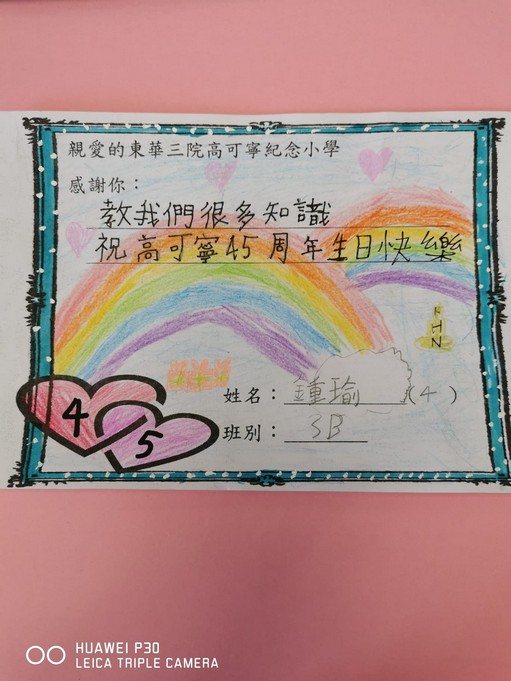 親愛的東華三院高可寧紀念小學
感謝你：
教我們很多知識
祝高可寧45周年生日快樂
KHN
姓名：鍾瑜(4)
班別：3B
4
5
HUAWEI P30
LEICA TRIPLE CAMERA